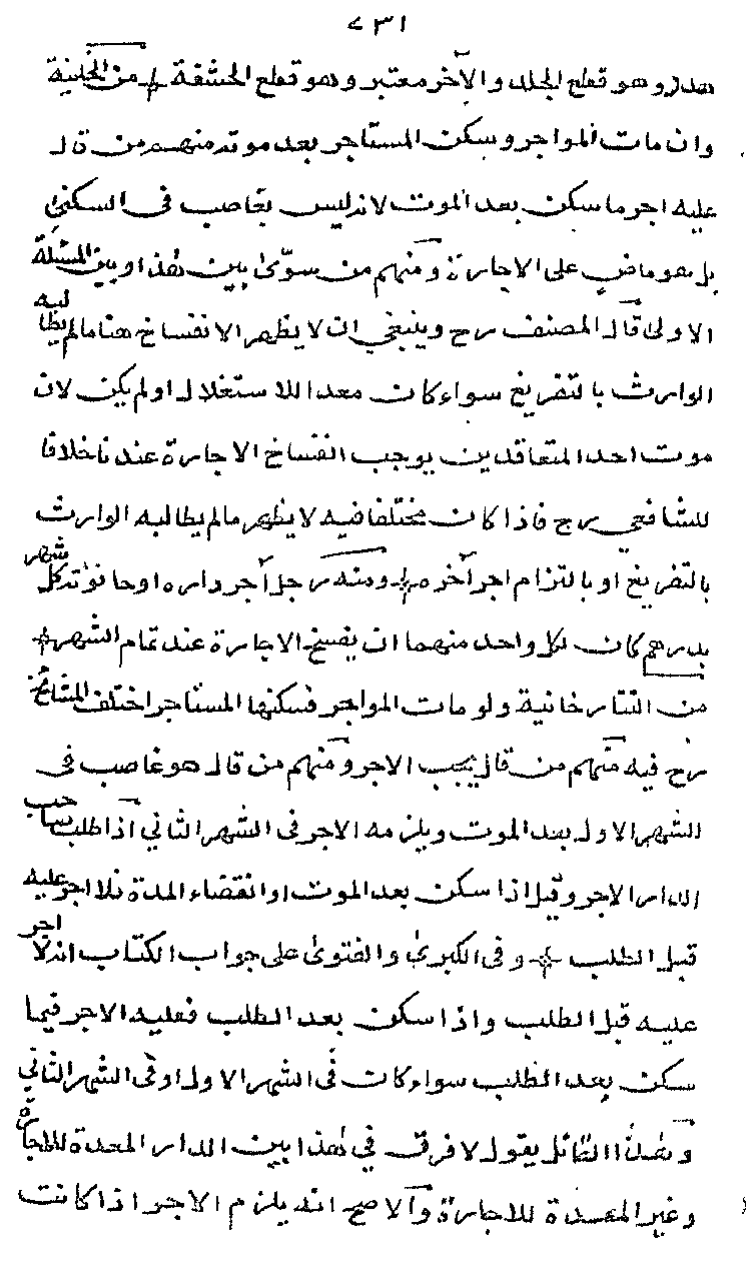 ٧٣١
هدر وهو قطع الجلد والآخر معتبر وهو قطع الحشفة من الخلنية
وان مات المواجر وسكن المستاجر بعد موته منهم من قال
عليه اجر ما سكن بعد الموت لانه ليس بغاصب فى السكنى
بل هو ماضٍ على الاجارة ومنهم من سوّى بين هذا وبين المسئلة
الاولى قال المصنف رح وينبغي ان لا يظهر الانفساخ هنا ما لم يطالبه
الوارث بالتفريغ سواء كان معدا للاستغلال او لم يكن لان
موت احد المتعاقدين يوجب انفساخ الاجارة عندنا خلافا
للشافعي رح فاذا كان مختلفا فيه لا يظهر ما لم يطالبه الوارث
بالتفريغ او بالتزام اجر آخره ومنه رجل آجر داره او حانوته كل شهر
بدرهم كان لكل واحد منهما ان يفسخ الاجارة عند تمام الشهر
من التتارخانية ولو مات المواجر فسكنها المستاجر اختلف المشائخ
رح فيه منهم من قال يجب الاجر ومنهم من قال هو غاصب فى
الشهر الاول بعد الموت ويلزمه الاجر فى الشهر الثاني اذا طلب صاحب
الدار الاجر وقيل اذا سكن بعد الموت او انقضاء المدة فلا اجر عليه
قبل الطلب وفى الكبرى والفتوى على جواب الكتاب انه لا اجر
عليه قبل الطلب واذا سكن بعد الطلب فعليه الاجر فيما
سكن بعد الطلب سواء كان فى الشهر الاول او فى الشهر الثاني
وهذا القائل يقول لا فرق في هذا بين الدار المعدة للاجارة
وغير المعدة للاجارة والاصح انه يلزم الاجر اذا كانت